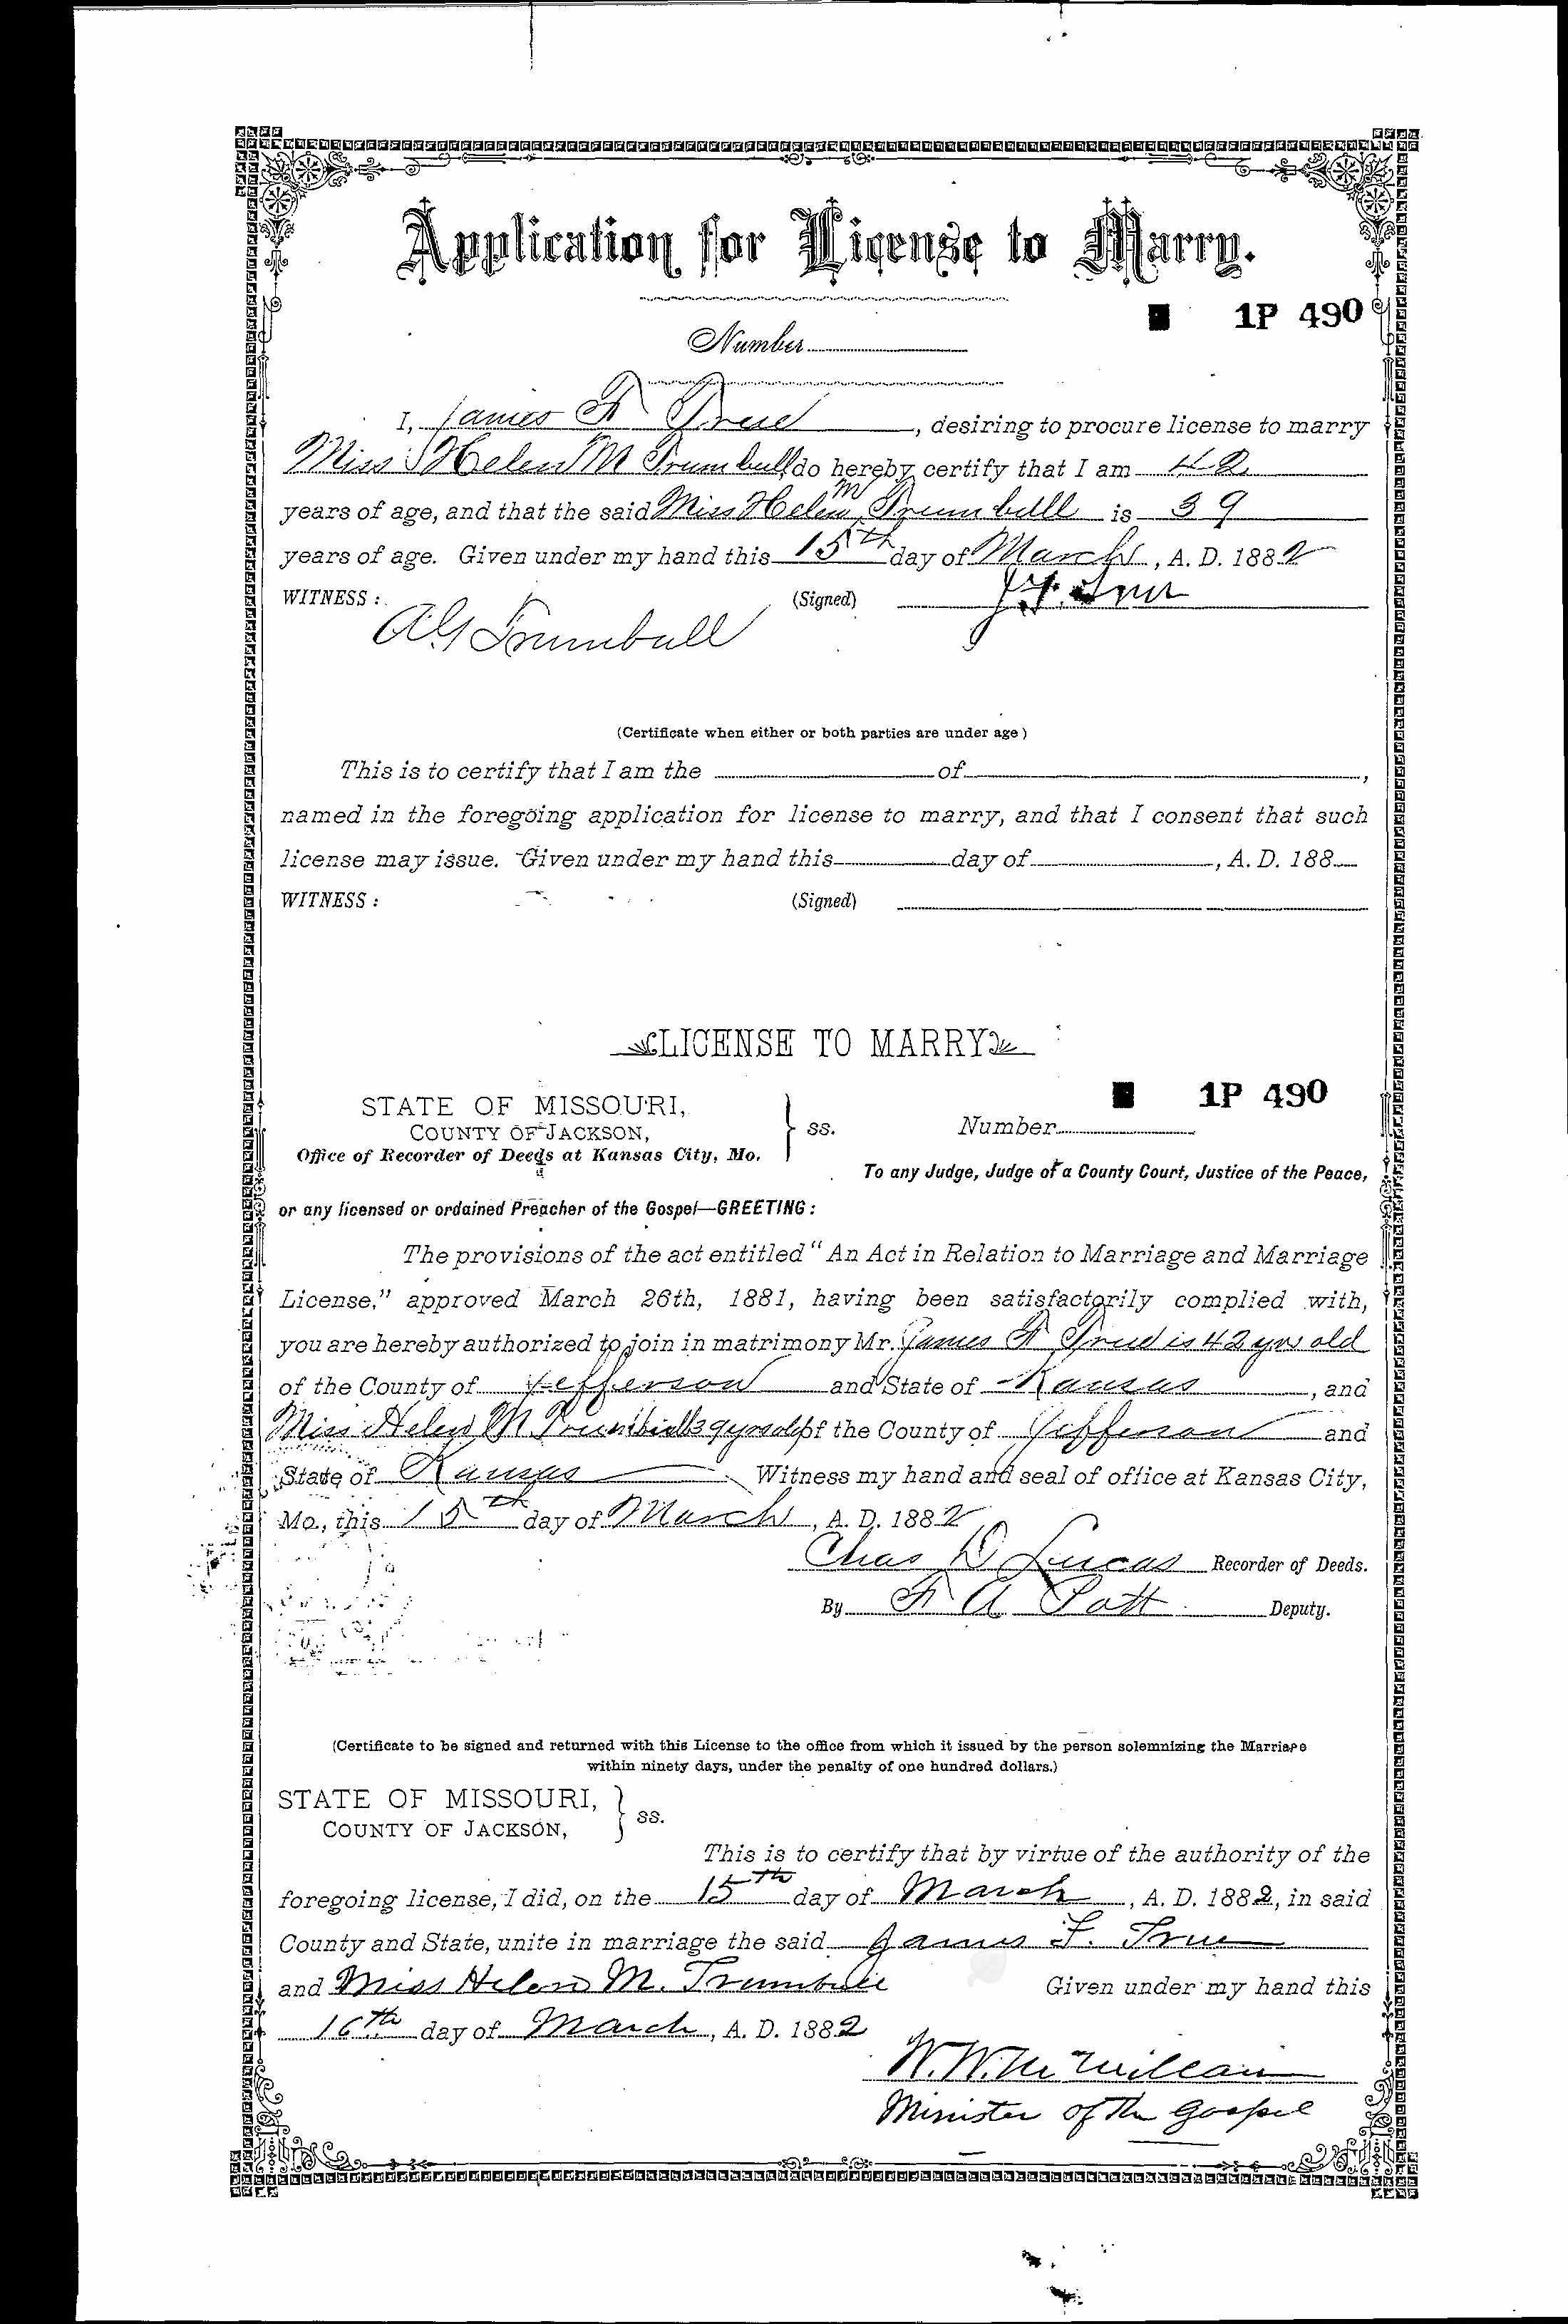 Application for License to Marry.
1P 490
Number
I, James F True, desiring to procure license to marry
Miss Helen M Trumbull do hereby certify that I am 42
years of age, and that the said Miss Helen M Trumbull is 39
years of age. Given under my hand this 15th day of March, A. D. 1882
WITNESS : (Signed) J. F. True
A G Trumbull
(Certificate when either or both parties are under age)
This is to certify that I am the of ,
named in the foregoing application for license to marry, and that I consent that such
license may issue. Given under my hand this day of , A. D. 188
WITNESS : (Signed)
LICENSE TO MARRY
1P 490
STATE OF MISSOURI,
COUNTY OF JACKSON, } ss. Number
Office of Recorder of Deeds at Kansas City, Mo.
To any Judge, Judge of a County Court, Justice of the Peace,
or any licensed or ordained Preacher of the Gospel—GREETING :
The provisions of the act entitled “An Act in Relation to Marriage and Marriage
License,” approved March 26th, 1881, having been satisfactorily complied with,
you are hereby authorized to join in matrimony Mr. James F True is 42 yrs old
of the County of Jefferson and State of Kansas, and
Miss Helen M. Trumbull 39 yrs old of the County of Jefferson and
State of Kansas Witness my hand and seal of office at Kansas City,
Mo., this 15th day of March, A. D. 1882
Chas D Lucas Recorder of Deeds.
By F A Patt Deputy.
(Certificate to be signed and returned with this License to the office from which it issued by the person solemnizing the Marriage
within ninety days, under the penalty of one hundred dollars.)
STATE OF MISSOURI,
COUNTY OF JACKSON, } ss.
This is to certify that by virtue of the authority of the
foregoing license, I did, on the 15th day of March, A. D. 1882, in said
County and State, unite in marriage the said James F. True
and Miss Helen M. Trumbull Given under my hand this
16th day of March, A. D. 1882
W. W. McMillan
Minister of the Gospel